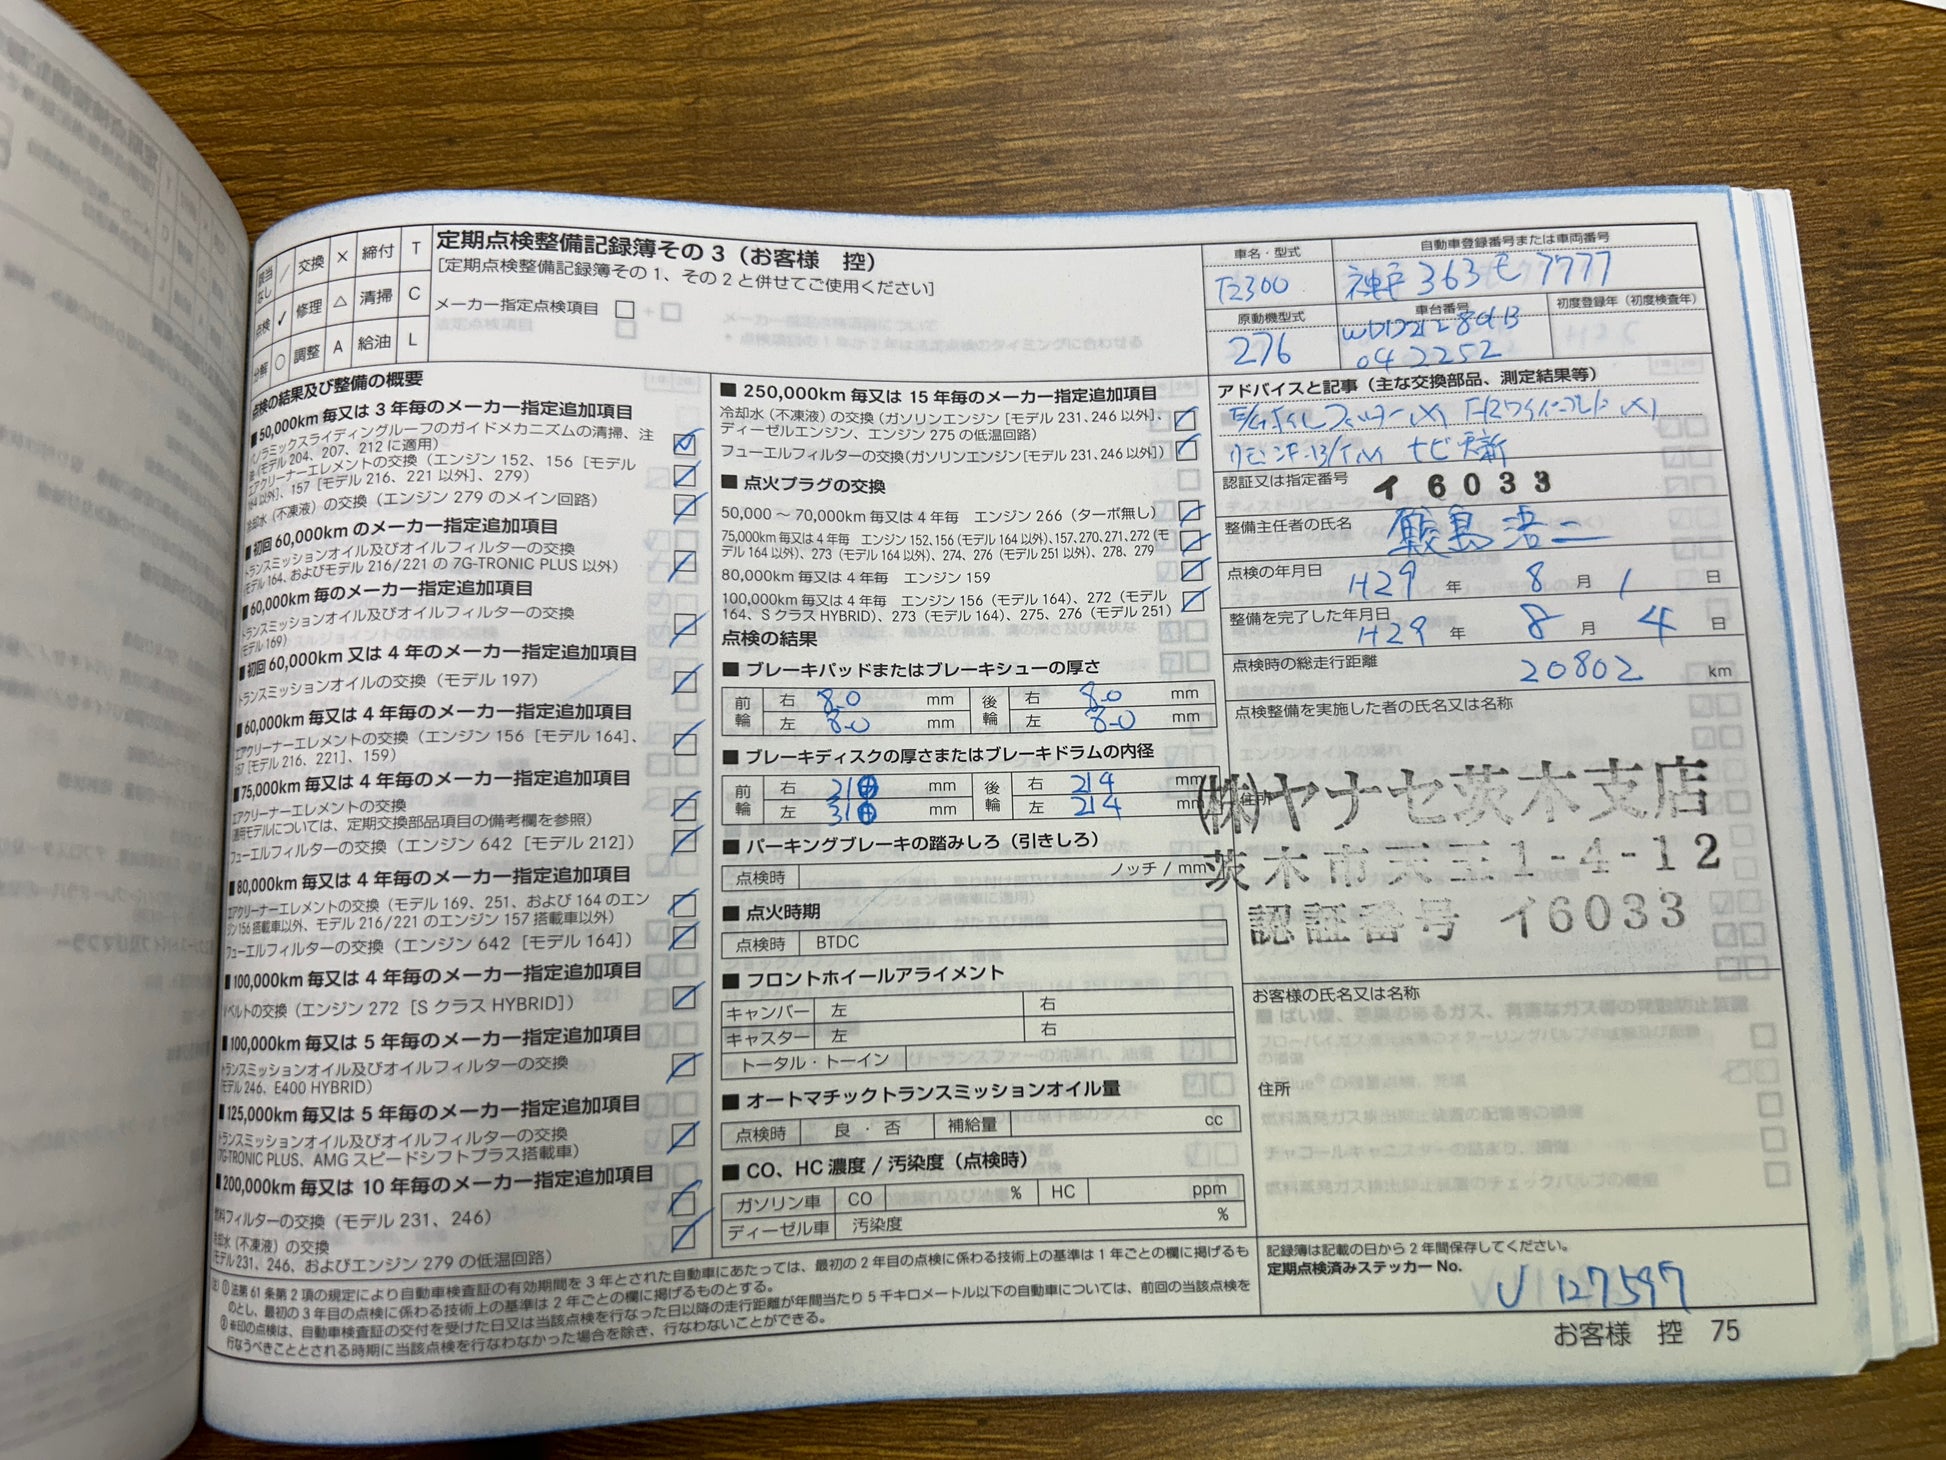 該当なし ／ 交換 × 締付 T
点検 ✓ 修理 △ 清掃 C
分解 ○ 調整 A 給油 L
定期点検整備記録簿その3（お客様 控）
[定期点検整備記録簿その1、その2と併せてご使用ください]
メーカー指定点検項目 □
車名・型式
自動車登録番号または車両番号
神戸 363 モ 7777
原動機型式
276
車台番号
042252
初度登録年（初度検査年）
点検の結果及び整備の概要
■50,000km 毎又は 3 年毎のメーカー指定追加項目
パノラミックスライディングルーフのガイドメカニズムの清掃、注
油（モデル 204、207、212 に適用）
エアクリーナーエレメントの交換（エンジン 152、156［モデル
164 以外］、157［モデル 216、221 以外］、279）
冷却水（不凍液）の交換（エンジン 279 のメイン回路）
■初回 60,000km のメーカー指定追加項目
トランスミッションオイル及びオイルフィルターの交換
（モデル 164、およびモデル 216/221 の 7G-TRONIC PLUS 以外）
■60,000km 毎のメーカー指定追加項目
トランスミッションオイル及びオイルフィルターの交換
（モデル 169）
■初回 60,000km 又は 4 年毎のメーカー指定追加項目
トランスミッションオイルの交換（モデル 197）
■60,000km 毎又は 4 年毎のメーカー指定追加項目
エアクリーナーエレメントの交換（エンジン 156［モデル 164］、
157［モデル 216、221］、159）
■75,000km 毎又は 4 年毎のメーカー指定追加項目
エアクリーナーエレメントの交換
（適用モデルについては、定期交換部品項目の備考欄を参照）
フューエルフィルターの交換（エンジン 642［モデル 212］）
■80,000km 毎又は 4 年毎のメーカー指定追加項目
エアクリーナーエレメントの交換（モデル 169、251、および 164 のエン
ジン 156 搭載車以外、モデル 216/221 のエンジン 157 搭載車以外）
フューエルフィルターの交換（エンジン 642［モデル 164］）
■100,000km 毎又は 4 年毎のメーカー指定追加項目
Vベルトの交換（エンジン 272［S クラス HYBRID］）
■100,000km 毎又は 5 年毎のメーカー指定追加項目
トランスミッションオイル及びオイルフィルターの交換
（モデル 246、E400 HYBRID）
■125,000km 毎又は 5 年毎のメーカー指定追加項目
トランスミッションオイル及びオイルフィルターの交換
（7G-TRONIC PLUS、AMG スピードシフトプラス搭載車）
■200,000km 毎又は 10 年毎のメーカー指定追加項目
燃料フィルターの交換（モデル 231、246）
冷却水（不凍液）の交換
（モデル 231、246、およびエンジン 279 の低温回路）
■ 250,000km 毎又は 15 年毎のメーカー指定追加項目
冷却水（不凍液）の交換（ガソリンエンジン［モデル 231、246 以外］、
ディーゼルエンジン、エンジン 275 の低温回路）
フューエルフィルターの交換（ガソリンエンジン［モデル 231、246 以外］）
■ 点火プラグの交換
50,000 ～ 70,000km 毎又は 4 年毎 エンジン 266（ターボ無し）
75,000km 毎又は 4 年毎 エンジン 152、156（モデル 164 以外）、157、270、271、272（モ
デル 164 以外）、273（モデル 164 以外）、274、276（モデル 251 以外）、278、279
80,000km 毎又は 4 年毎 エンジン 159
100,000km 毎又は 4 年毎 エンジン 156（モデル 164）、272（モデル
164、S クラス HYBRID）、273（モデル 164）、275、276（モデル 251）
点検の結果
■ ブレーキパッドまたはブレーキシューの厚さ
前輪 右 8.0 mm 後輪 右 8.0 mm
左 8.0 mm 左 8.0 mm
■ ブレーキディスクの厚さまたはブレーキドラムの内径
前輪 右 mm 後輪 右 214 mm
左 mm 左 214 mm
■ パーキングブレーキの踏みしろ（引きしろ）
点検時 ノッチ / mm
■ 点火時期
点検時 BTDC
■ フロントホイールアライメント
キャンバー 左 右
キャスター 左 右
トータル・トーイン
■ オートマチックトランスミッションオイル量
点検時 良 ・ 否 補給量 cc
■ CO、HC 濃度 / 汚染度（点検時）
ガソリン車 CO % HC ppm
ディーゼル車 汚染度 %
アドバイスと記事（主な交換部品、測定結果等）
ナビ更新
認証又は指定番号 イ 6033
整備主任者の氏名 鮫島 浩二
点検の年月日 H29 年 8 月 1 日
整備を完了した年月日 H29 年 8 月 4 日
点検時の総走行距離 20802 km
点検整備を実施した者の氏名又は名称
住所
㈱ヤナセ茨木支店
茨木市天王1-4-12
認証番号 イ6033
お客様の氏名又は名称
住所
記録簿は記載の日から 2 年間保存してください。
定期点検済みステッカー No.
V 127597
注）① 法第 61 条第 2 項の規定により自動車検査証の有効期間を 3 年とされた自動車にあたっては、最初の 2 年目の点検に係わる技術上の基準は 1 年ごとの欄に掲げるも
のとし、最初の 3 年目の点検に係わる技術上の基準は 2 年ごとの欄に掲げるものとする。
② ※印の点検は、自動車検査証の交付を受けた日又は当該点検を行なった日以降の走行距離が年間当たり 5 千キロメートル以下の自動車については、前回の当該点検を
行なうべきこととされる時期に当該点検を行なわなかった場合を除き、行なわないことができる。
お客様 控 75